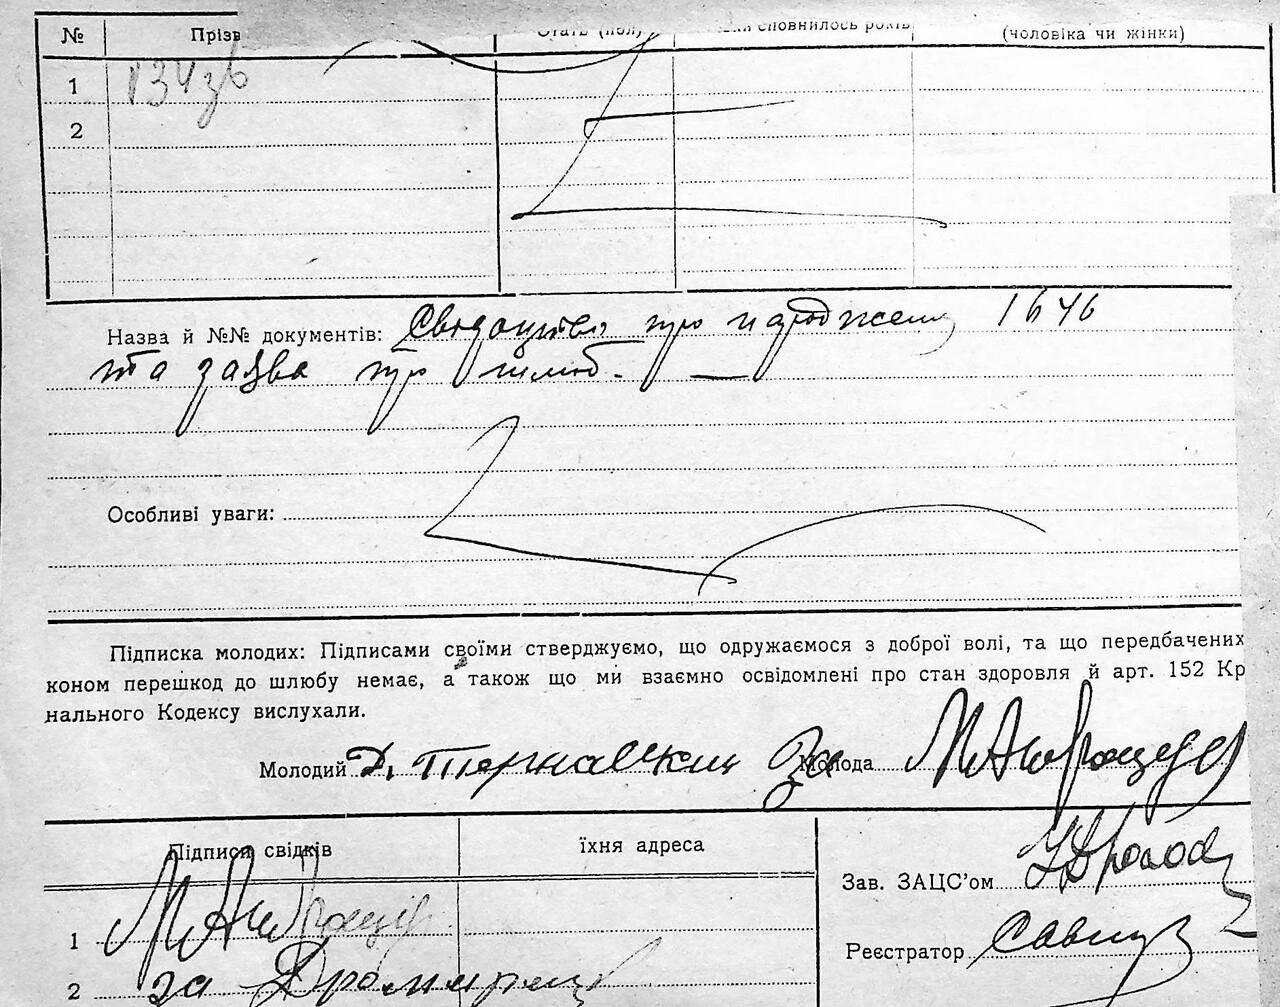 № Прізв Стать (пол) сповнилось років (чоловіка чи жінки)
1
2
Назва й №№ документів: Свідоцтво про народження 1646
та заява про шлюб. —
Особливі уваги:
Підписка молодих: Підписами своїми стверджуємо, що одружаємося з доброї волі, та що передбачених
коном перешкод до шлюбу немає, а також що ми взаємно освідомлені про стан здоровля й арт. 152 Кр
нального Кодексу вислухали.
Молодий Д. Тернавский За Молода
Підписи свідків їхня адреса
Зав. ЗАЦС'ом
1
Реєстратор
2 за